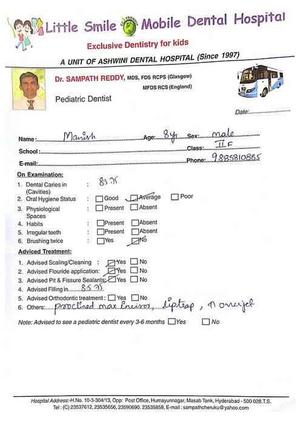 Little Smile Mobile Dental Hospital
Exclusive Dentistry for kids
A UNIT OF ASHWINI DENTAL HOSPITAL (Since 1997)
Dr. SAMPATH REDDY, MDS, FDS RCPS (Glasgow)
MFDS RCS (England)
Pediatric Dentist
Date:
Name: Manish Age: 8yr Sex: male
School: Class: II F
E-mail: Phone: 9885810865
On Examination:
1. Dental Caries in (Cavities) : 85 75
2. Oral Hygiene Status : Good Average Poor
3. Physiological Spaces : Present Absent
4. Habits : Present Absent
5. Irregular teeth : Present Absent
6. Brushing twice : Yes No
Adviced Treatment:
1. Advised Scaling/Cleaning : Yes No
2. Advised Flouride application: Yes No
3. Advised Pit & Fissure Sealants: Yes No
4. Advised Filling in 85 75
5. Advised Orthodontic treatment : Yes No
6. Others: proclined max incisors, liptrap, overjet
Note: Advised to see a pediatric dentist every 3-6 months Yes No
Hospital Address:-H.No. 10-3-304/13, Opp: Post Office, Humayunnagar, Masab Tank, Hyderabad - 500 028 T.S.
Tel: (C) 23537612, 23535656, 23590690, 23535858, E-mail : sampathcheruku@yahoo.com